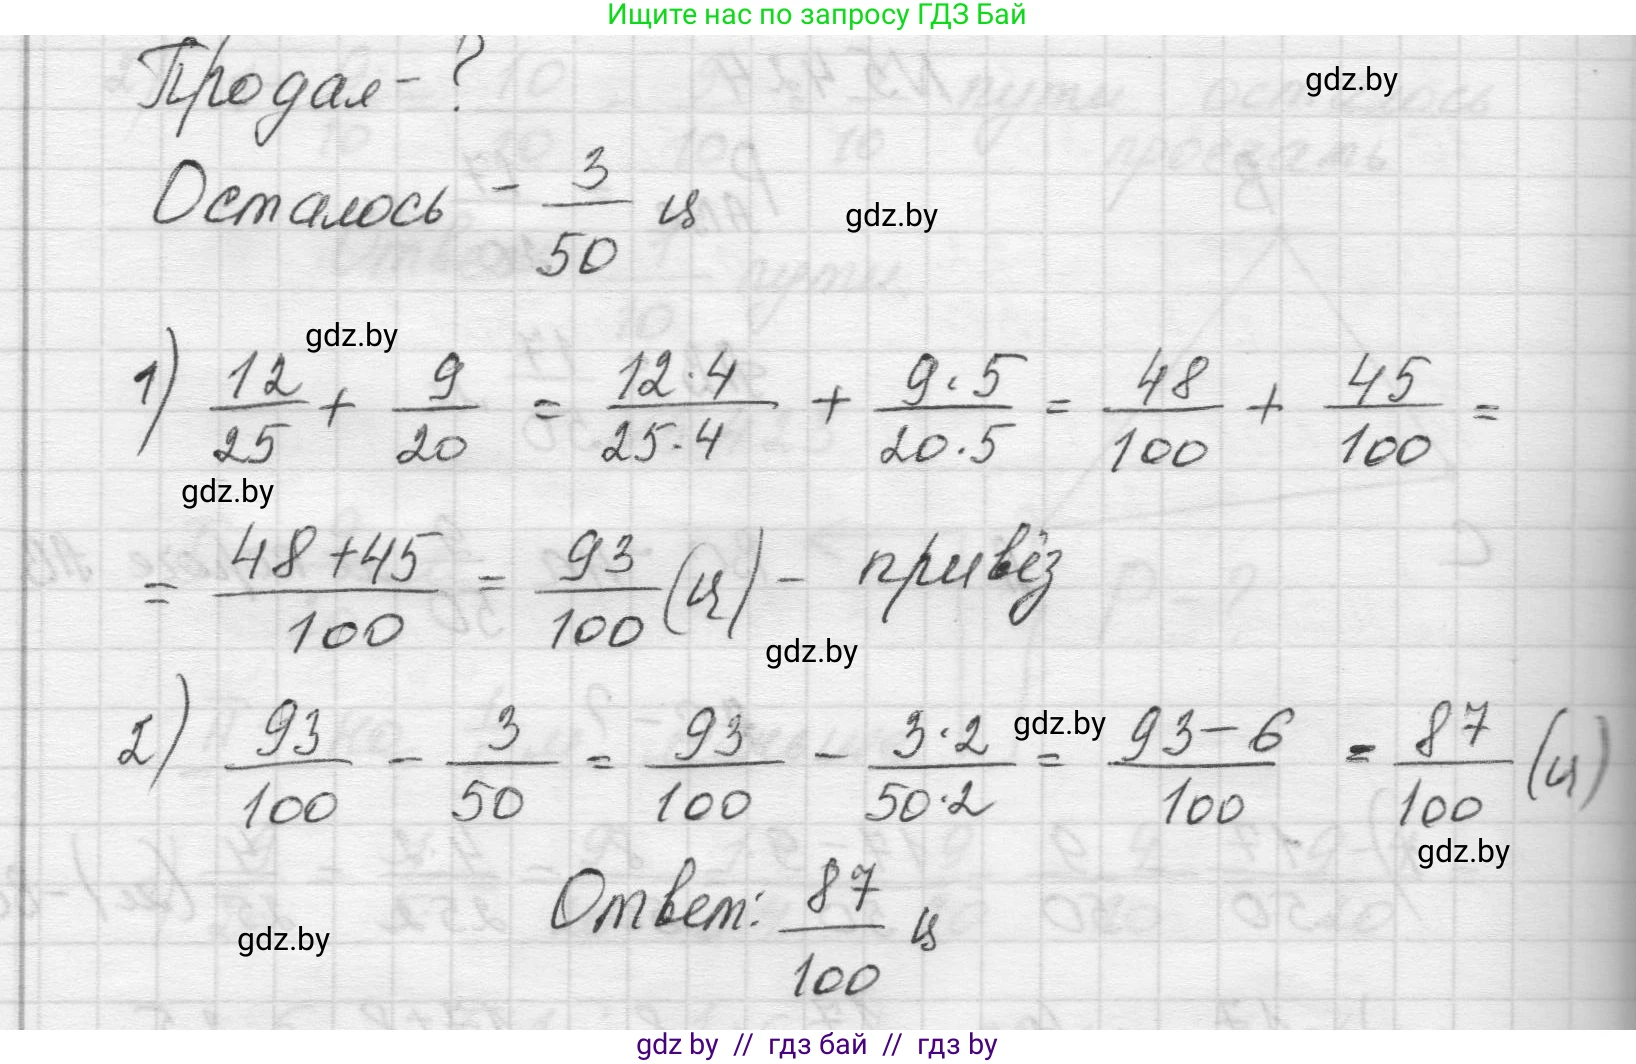 Ищите нас по запросу ГДЗ Бай
Продал - ?
gdz.by
Осталось - 3/50 ц
gdz.by
gdz.by
1) 12/25 + 9/20 = 12·4/25·4 + 9·5/20·5 = 48/100 + 45/100 =
gdz.by
= 48+45/100 = 93/100 (ц) - привёз
gdz.by
2) 93/100 - 3/50 = 93/100 - 3·2/50·2 = 93-6/100 = 87/100 (ц)
gdz.by
gdz.by
Ответ: 87/100 ц
gdz.by
gdz by // гдз бай // гдз by